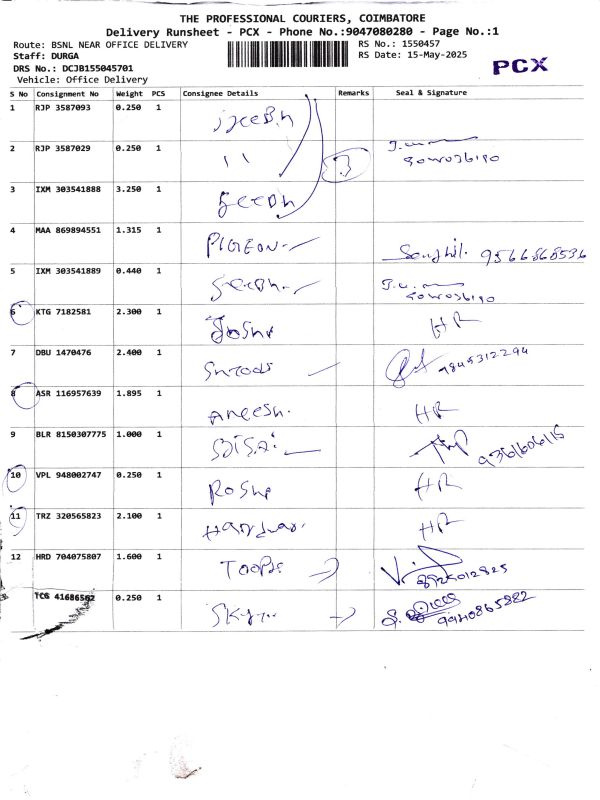 THE PROFESSIONAL COURIERS, COIMBATORE
Delivery Runsheet - PCX - Phone No.:9047080280 - Page No.:1
Route: BSNL NEAR OFFICE DELIVERY RS No.: 1550457
Staff: DURGA RS Date: 15-May-2025
DRS No.: DCJB155045701 PCX
Vehicle: Office Delivery
S No Consignment No Weight PCS Consignee Details Remarks Seal & Signature
1 RJP 3587093 0.250 1
2 RJP 3587029 0.250 1 11 3
3 IXM 303541888 3.250 1
4 MAA 869894551 1.315 1 PIGEON 9566868536
5 IXM 303541889 0.440 1
6 KTG 7182581 2.300 1 HR
7 DBU 1470476 2.400 1 9845312294
8 ASR 116957639 1.895 1 Aneesh. HR
9 BLR 8150307775 1.000 1
10 VPL 948002747 0.250 1 HR
11 TRZ 320565823 2.100 1 HR
12 HRD 704075807 1.600 1
TCG 41686562 0.250 1 9940865882